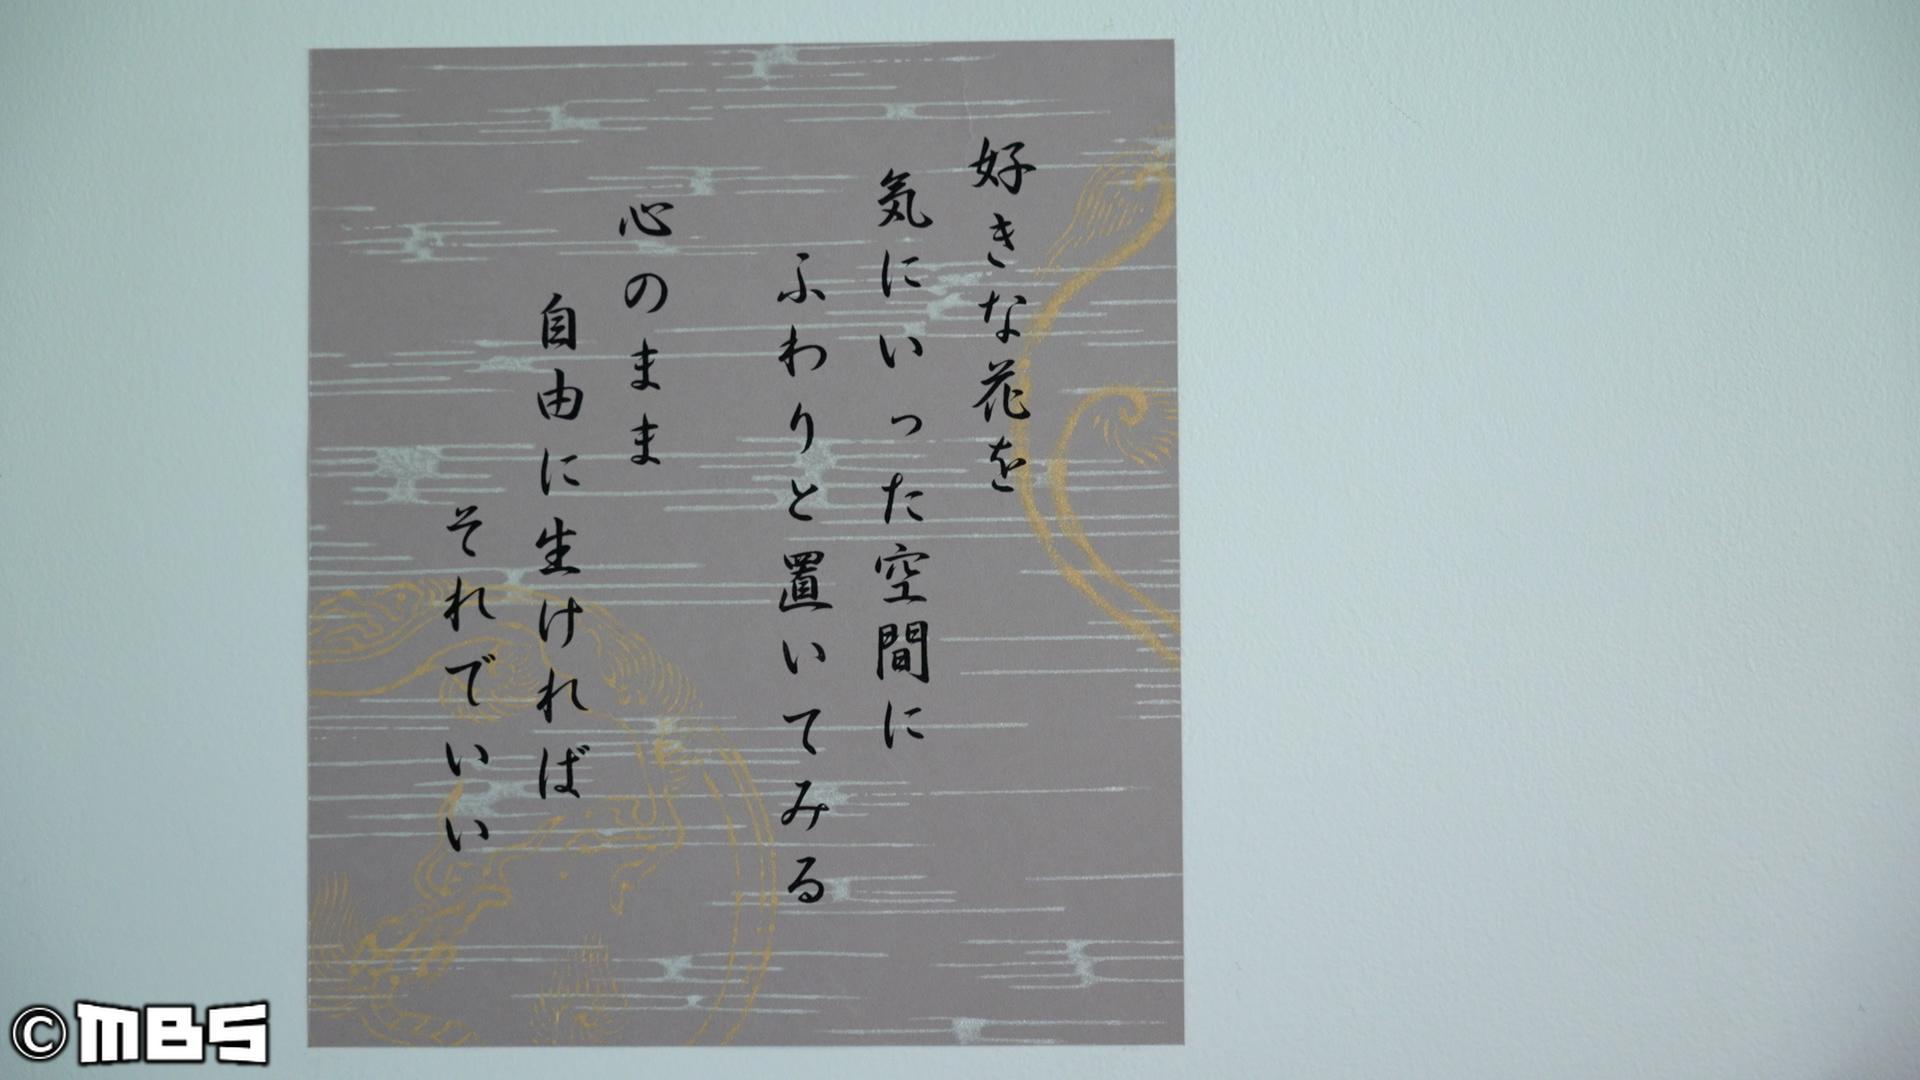 好きな花を
気にいった空間に
ふわりと置いてみる
心のまま
自由に生ければ
それでいい
©MBS